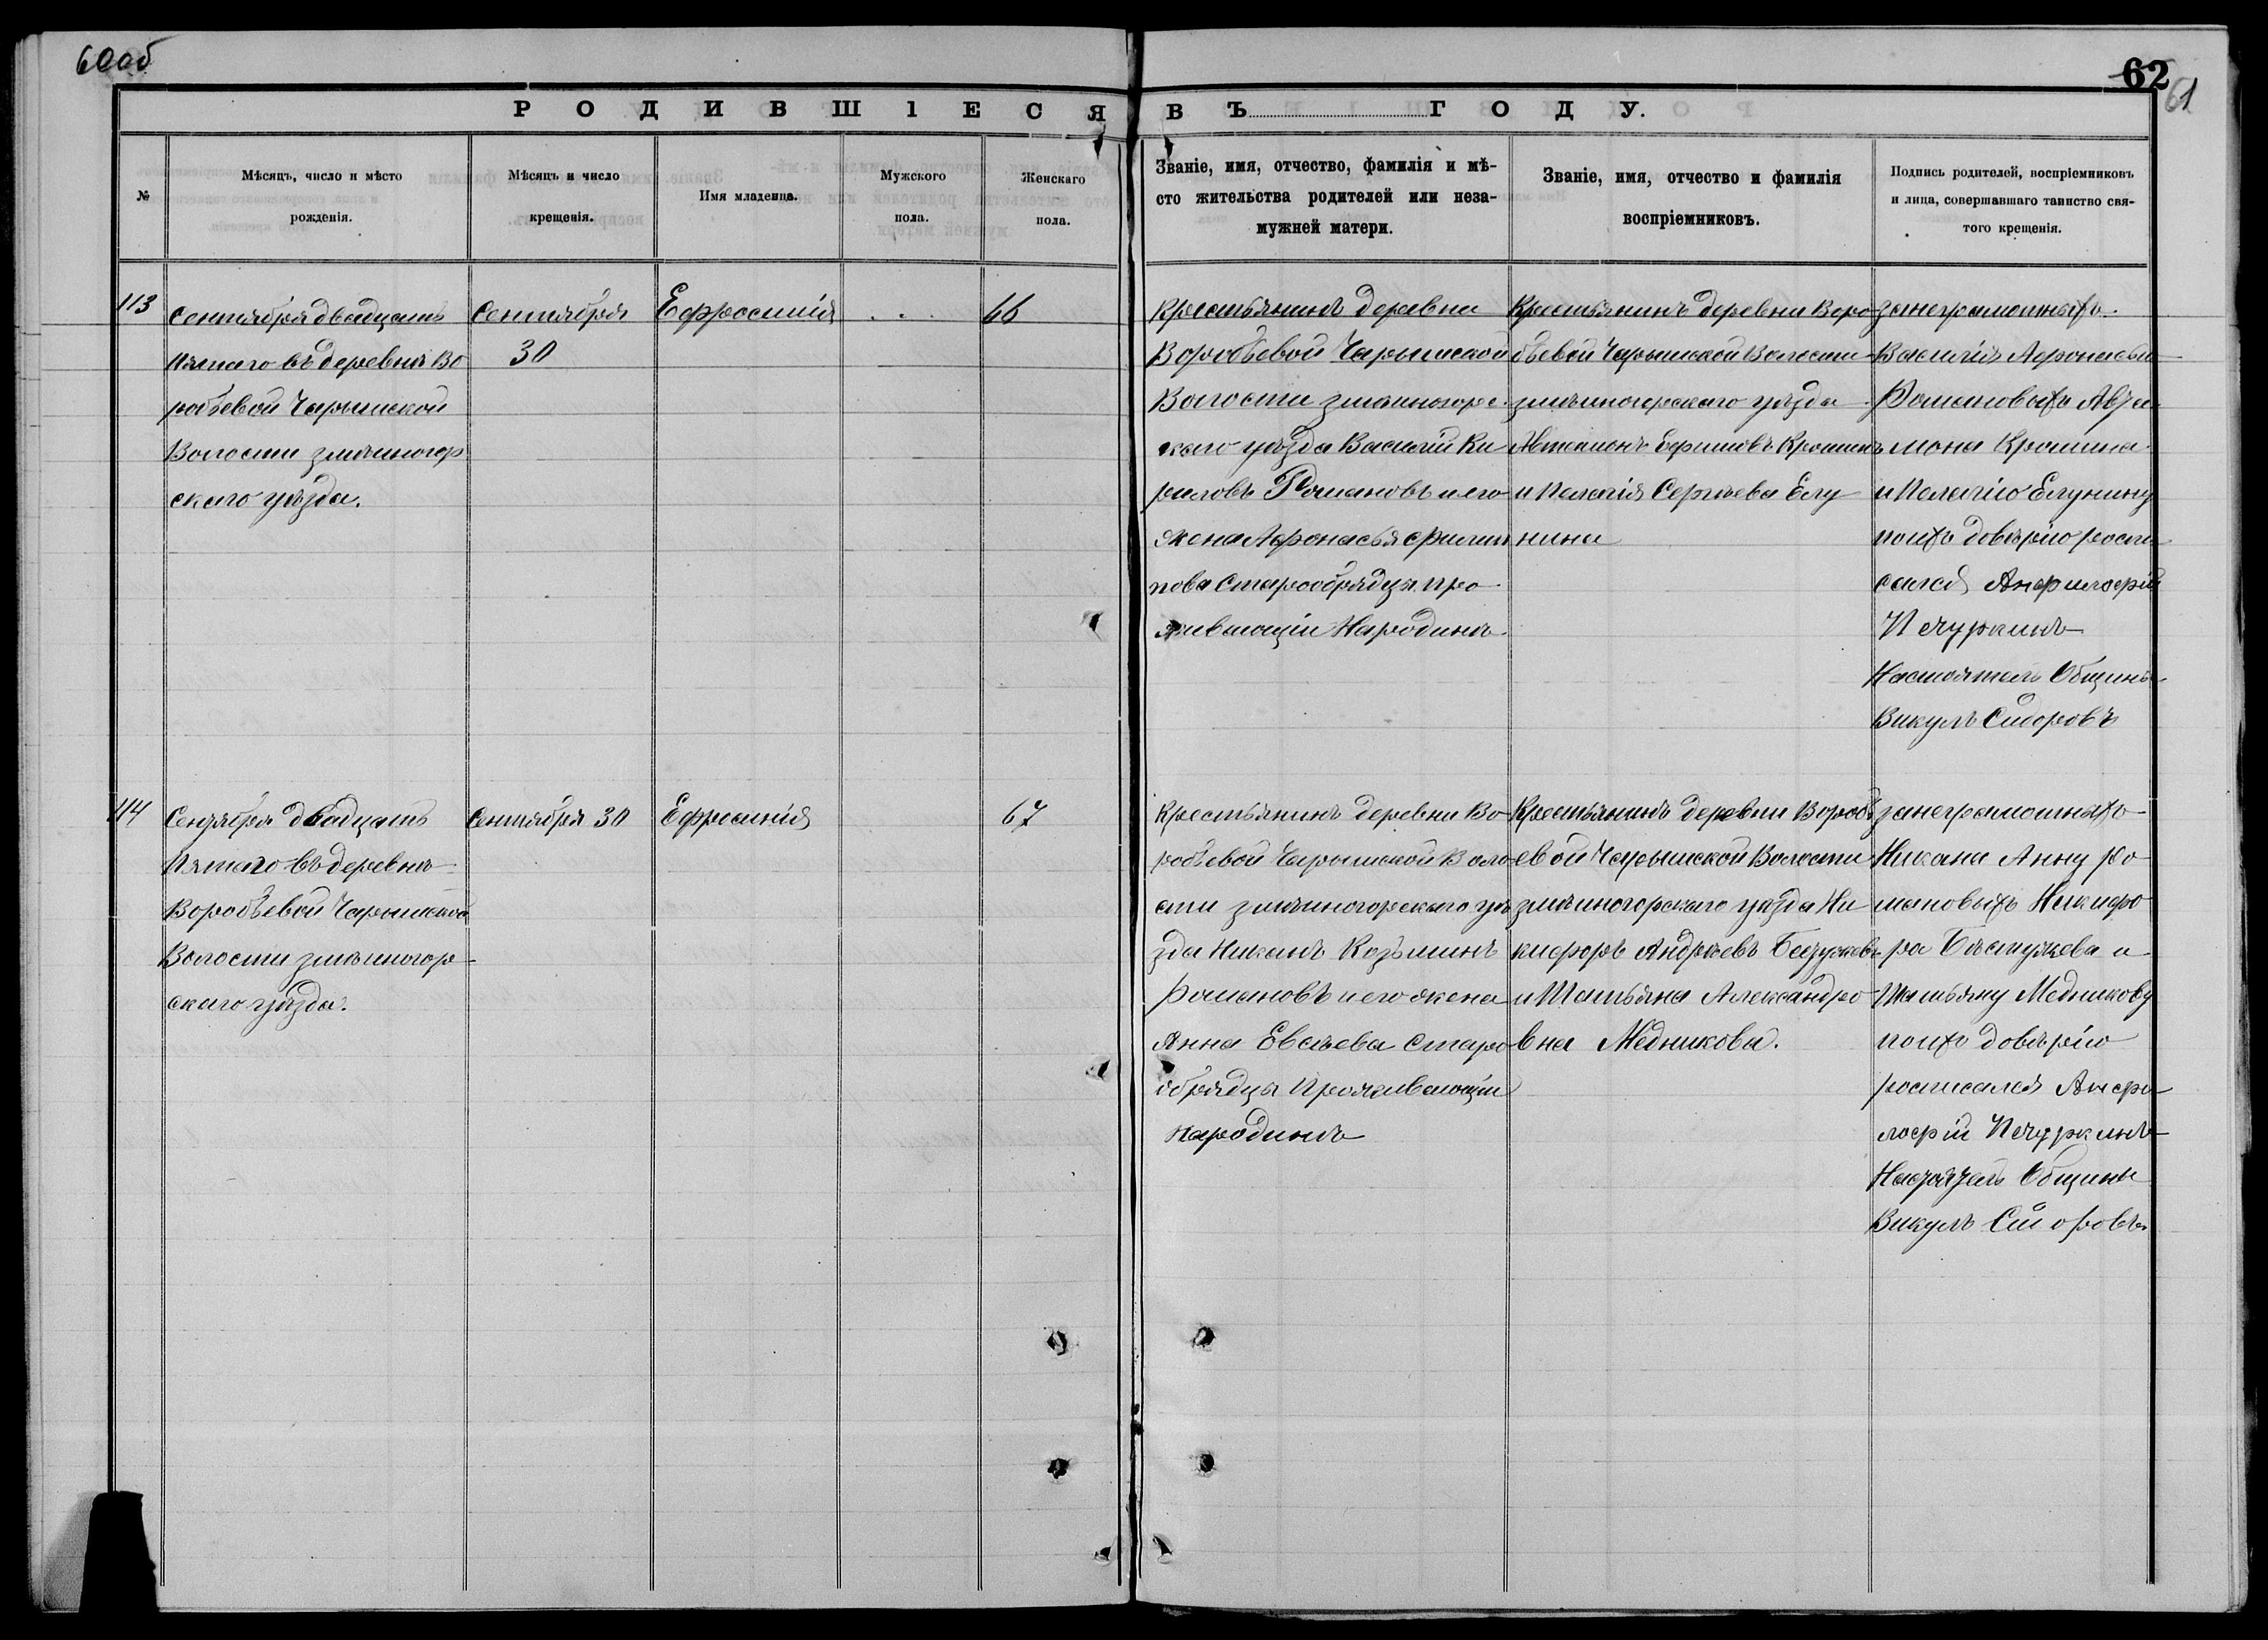 60об
62
61
РОДИВШІЕСЯ ВЪ ГОДУ.
№
Мѣсяцъ, число и мѣсто
рожденія.
Мѣсяцъ и число
крещенія.
Имя младенца.
Мужского
пола.
Женскаго
пола.
Званіе, имя, отчество, фамилія и мѣ-
сто жительства родителей или неза-
мужней матери.
Званіе, имя, отчество и фамилія
воспріемниковъ.
Подпись родителей, воспріемниковъ
и лица, совершавшаго таинство свя-
того крещенія.
113
Сентября двадцать
пятаго въ деревнѣ Во
робьевой Чарышской
Волости змѣиногор
скаго уѣзда.
Сентября
30
Ефросинія
66
Крестьянинъ деревни
Воробьевой Чарышской
Волости змѣиногорс
каго уѣзда Василій Ки
риловъ Романовъ и его
жена Афонасья Филип
пова Старообрядцы про
живающіи Народинѣ
Крестьянинъ деревни Воро
бьевой Чарышской Волости
змѣиногорскаго уѣзда
Автамонъ Ефимовъ Крошинъ
и Пелагія Сергѣева Елу
нина
занеграмотныхъ
Василія Афонасью
Романовыхъ Авта
мона Крошина
и Пелагію Елунину
поихъ довѣрію роспи
салсӕ Анфилофій
Печуркинъ
Настоятель Общины
Викулъ Сидоровъ
114
Сентября двадцать
Пятаго въ деревнѣ
Воробьевой Чарышской
Волости змѣиногор
скаго уѣзда.
Сентября 30
Ефросинія
67
Крестьянинъ деревни Во
робьевой Чарышской Воло
сти змѣиногорскаго уѣ
зда Никонъ Козьминъ
Романовъ и его жена
Анна Евсѣева Старо
обрядцы Проживающіи
Народинѣ
Крестьянинъ деревни Вороб
евой Чарышской Волости
змѣиногорскаго уѣзда Ни
кифоръ Андрѣевъ
и Татьяна Александро
вна Медникова.
занеграмотныхъ
Никона Анну Ро
мановыхъ Никифо
ра Бастужева и
Татьяну Медникову
поихъ довѣрію
росписался Анфи
лофій Печуркинъ
Настоятель Общины
Викулъ Сидоровъ